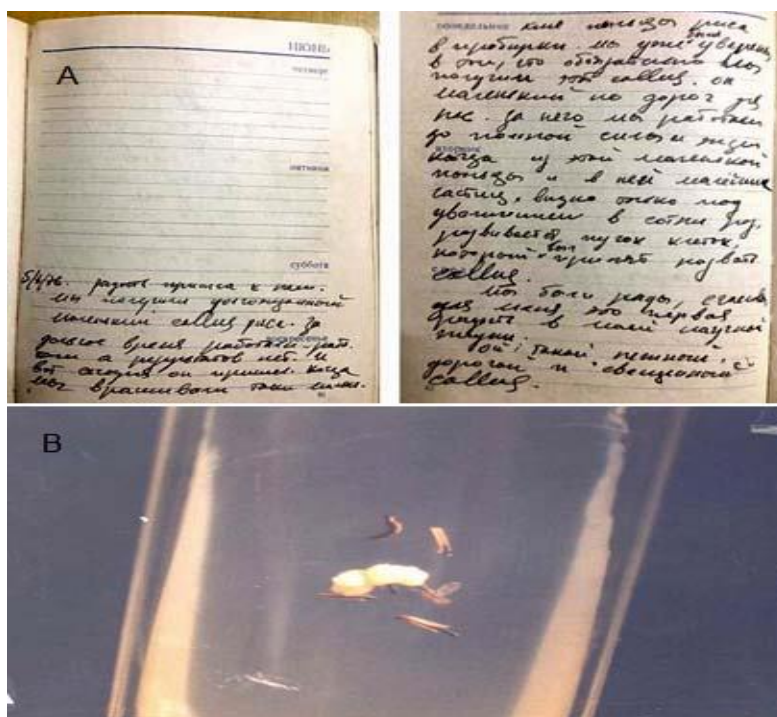 A
ИЮНЬ
четверг
пятница
суббота
5/4/76. радость пришла к нам.
мы получили долгожданный
маленький callus риса. За
воскресенье
долгое время работали, рабо
тали а результатов нет. и
вот сегодня он пришел. когда
мы вращивали такие
понедельник
риса
в пробирки. мы уже были уверены
в том, что обязательно мы
получим этот callus. он
маленький но дорог для
нас. За него мы работали
до полной силы и
вторник
когда из этой маленькой
и в ней
частица, видно только под
увеличением в сотни раз,
развивается пучок клеток,
который был принят назвать
callus.
Мы были рады,
для меня это первая
радость в моей научной
жизни
он, такой нежный,
дорогой и священный
callus.
B